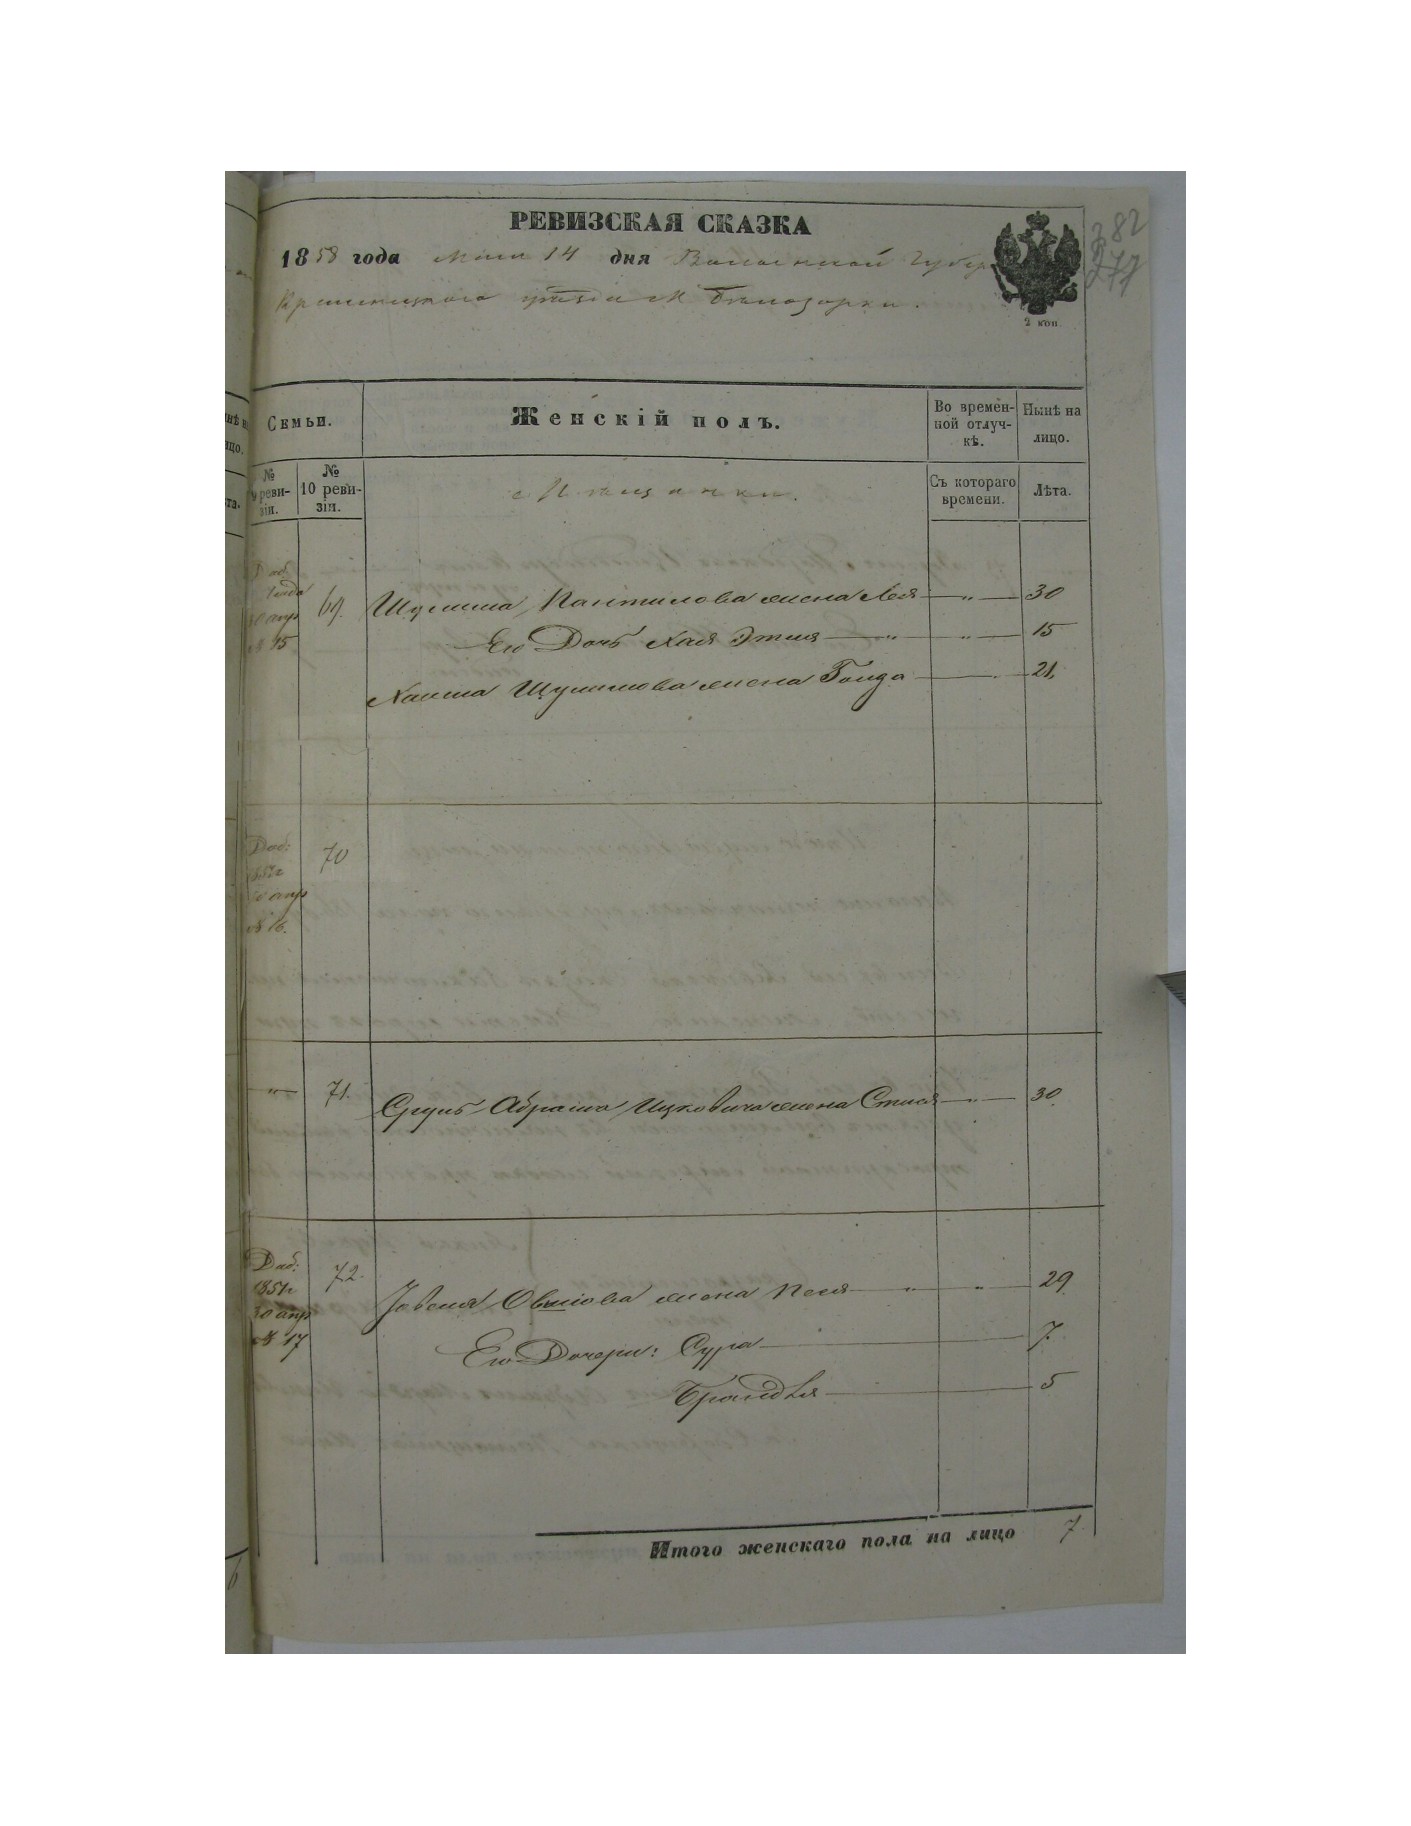 РЕВИЗСКАЯ СКАЗКА
1858 года Маія 14 дня Волынской Губер
Кременецкого уезда М Белозорки.
382
277
2 коп
Семьи.
Женскій полъ.
Во времен-
ной отлуч-
кѣ.
Нынѣ на
лицо.
№
9 реви-
зіи.
№
10 реви-
зіи.
Мещанки.
Съ котораго
времени.
Лѣта.
30 апр
№ 15
69. Шулима жена Лея — „ — 30
Его Дочь Хая Этля — „ — 15
Хаима Шулимова жена Голда — 21.
Доб:
1851г
30 апр
№ 16.
70
— „ — 71. Сруль Абрама Ицковича жена — „ — 30
Доб:
1851г
30 апр
№ 17
72. жена Песя — „ — „ — 29
Его Дочери: Сура — 7
Брандля — 5
Итого женскаго пола на лицо 7.